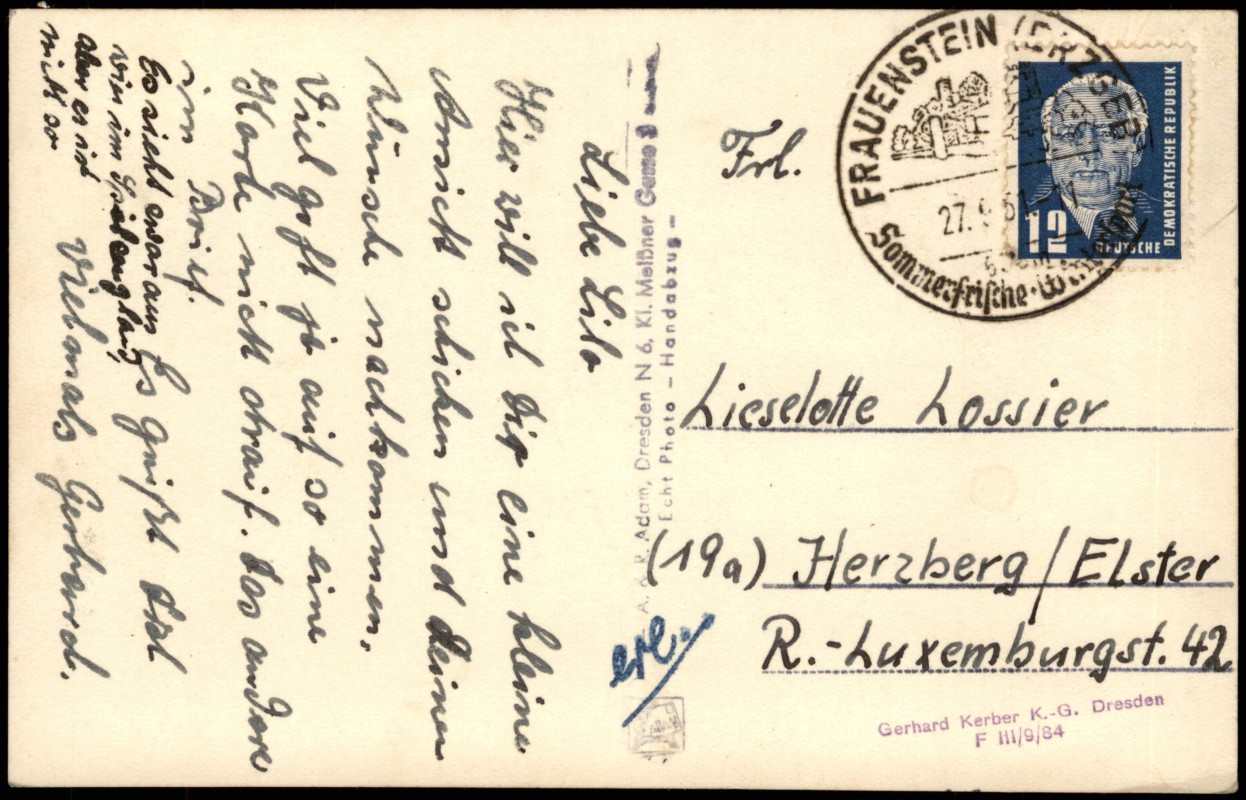 Liebe Lilo
Hier will ich Dir eine kleine
Ansicht schicken und deinen
Wünsche nachkommen,
Viel geht ja auf so eine
Karte nicht drauf. Das andere
im Brief.
Es grüßt Dich
Vielmals Gerhard.
Es sieht zwar aus
wie im
aber es ist
nicht so
A. & R. Adam, Dresden N 6, Kl. Meißner Gasse
Echt Photo – Handabzug –
ADAM
erl.
FRAUENSTEIN (ERZGEB)
27. 9. 51 – 11
Sommerfrische · Wintersport
12
DEUTSCHE DEMOKRATISCHE REPUBLIK
Frl.
Lieselotte Lossier
(19a) Herzberg/Elster
R.-Luxemburgst. 42
Gerhard Kerber K.-G. Dresden
F III/9/84